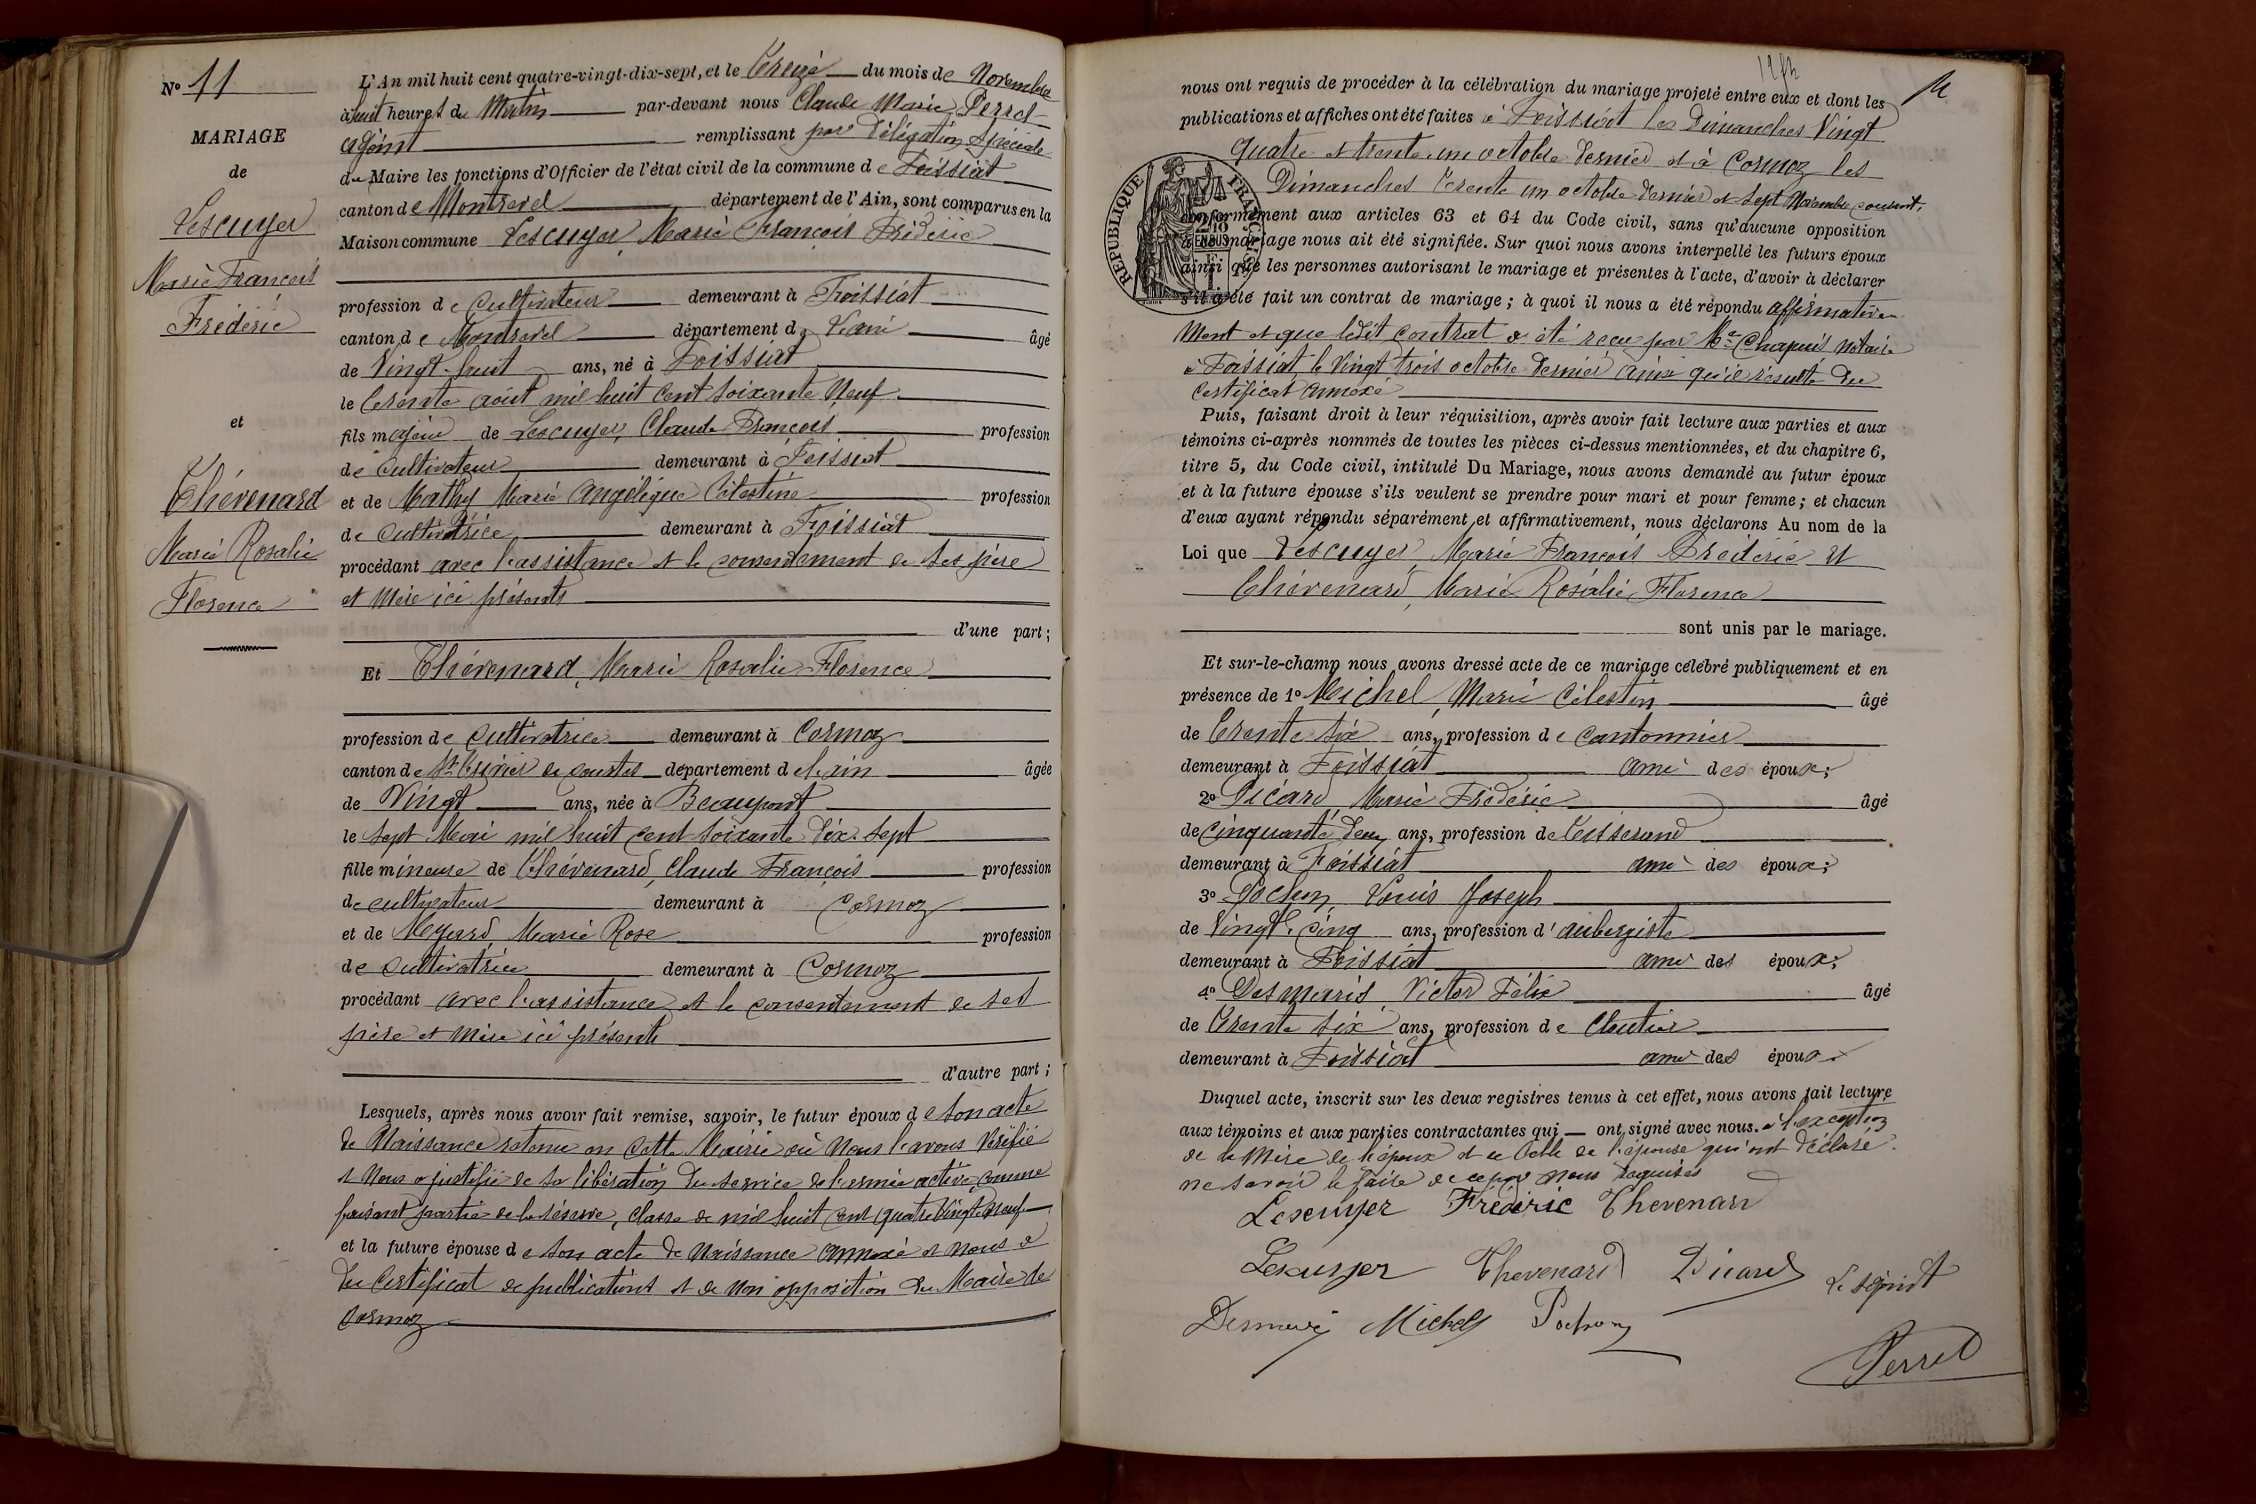 N° 11
MARIAGE
de
Lescuyer
Marie François
Frédéric
et
Thévenard
Marie Rosalie
Florence
L'An mil huit cent quatre-vingt-dix-sept, et le Treize du mois de Novembre
à huit heures du Matin par-devant nous Claude Marie Perret
adjoint remplissant par Délégation Spéciale
du Maire les fonctions d'Officier de l'état civil de la commune de Foissiat
canton de Montrevel département de l'Ain, sont comparus en la
Maison commune Lescuyer, Marie François Frédéric
profession de Cultivateur demeurant à Foissiat
canton de Montrevel département de l'ain âgé
de Vingt-huit ans, né à Foissiat
le trente août mil huit cent soixante Neuf
fils majeur de Lescuyer, Claude François profession
de Cultivateur demeurant à Foissiat
et de Mathy Marie Angélique Célestine profession
de Cultivatrice demeurant à Foissiat
procédant avec l'assistance et le consentement de ses père
et mère ici présents
d'une part;
Et Thévenard, Marie Rosalie Florence
profession de Cultivatrice demeurant à Cormoz
canton de St Trivier de courtes département de l'ain âgée
de Vingt ans, née à Beaupont
le sept Mai mil huit cent soixante dix-sept
fille mineure de Thévenard, Claude François profession
de cultivateur demeurant à Cormoz
et de Meyard Marie Rose profession
de cultivatrice demeurant à Cormoz
procédant avec l'assistance et le consentement de ses
père et mère ici présents
d'autre part;
Lesquels, après nous avoir fait remise, savoir, le futur époux de son acte
de Naissance retenu en cette Mairie où Nous l'avons Vérifié
et Nous a justifié de sa libération du service de l'armée active, comme
faisant partie de la réserve, classe de mil huit cent quatre vingt neuf
et la future épouse de son acte de Naissance annexé et nous a
du Certificat de publications et de non opposition du Maire de
Cormoz
nous ont requis de procéder à la célébration du mariage projeté entre eux et dont les
publications et affiches ont été faites à Foissiat les Dimanches Vingt
quatre et trente-un octobre dernier et à Cormoz les
Dimanches trente un octobre dernier et sept Novembre courant,
RÉPUBLIQUE FRANÇAISE
conformément aux articles 63 et 64 du Code civil, sans qu'aucune opposition
à ce mariage nous ait été signifiée. Sur quoi nous avons interpellé les futurs époux
ainsi que les personnes autorisant le mariage et présentes à l'acte, d'avoir à déclarer
s'il a été fait un contrat de mariage; à quoi il nous a été répondu affirmative
ment et que ledit contrat a été reçu par Me Chapuis notaire
à Foissiat, le Vingt trois octobre dernier ainsi qu'il résulte du
Certificat annexé
Puis, faisant droit à leur réquisition, après avoir fait lecture aux parties et aux
témoins ci-après nommés de toutes les pièces ci-dessus mentionnées, et du chapitre 6,
titre 5, du Code civil, intitulé Du Mariage, nous avons demandé au futur époux
et à la future épouse s'ils veulent se prendre pour mari et pour femme; et chacun
d'eux ayant répondu séparément et affirmativement, nous déclarons Au nom de la
Loi que Lescuyer, Marie François Frédéric et
Thévenard, Marie Rosalie Florence
sont unis par le mariage.
Et sur-le-champ nous avons dressé acte de ce mariage célébré publiquement et en
présence de 1° Michel, Marie Célestin âgé
de Trente six ans, profession de Cantonnier
demeurant à Foissiat ami des époux;
2° Picard, Marie Frédéric âgé
de cinquante deux ans, profession de Tisserand
demeurant à Foissiat ami des époux;
3° Pochon, Louis Joseph
de Vingt-cinq ans, profession d'aubergiste
demeurant à Foissiat ami des époux;
4° Desmaris, Victor Félix âgé
de Trente six ans, profession de Cloutier
demeurant à Foissiat ami des époux
Duquel acte, inscrit sur les deux registres tenus à cet effet, nous avons fait lecture
aux témoins et aux parties contractantes qui ont signé avec nous. à l'exception
de la Mère de l'époux et de celle de l'épouse qui ont déclaré
ne savoir le faire de ce par nous requises
Lescuyer Frédéric Thevenard
Lescuyer Thevenard Picard L'adjoint
Desmaris Michel Pochon
Perret